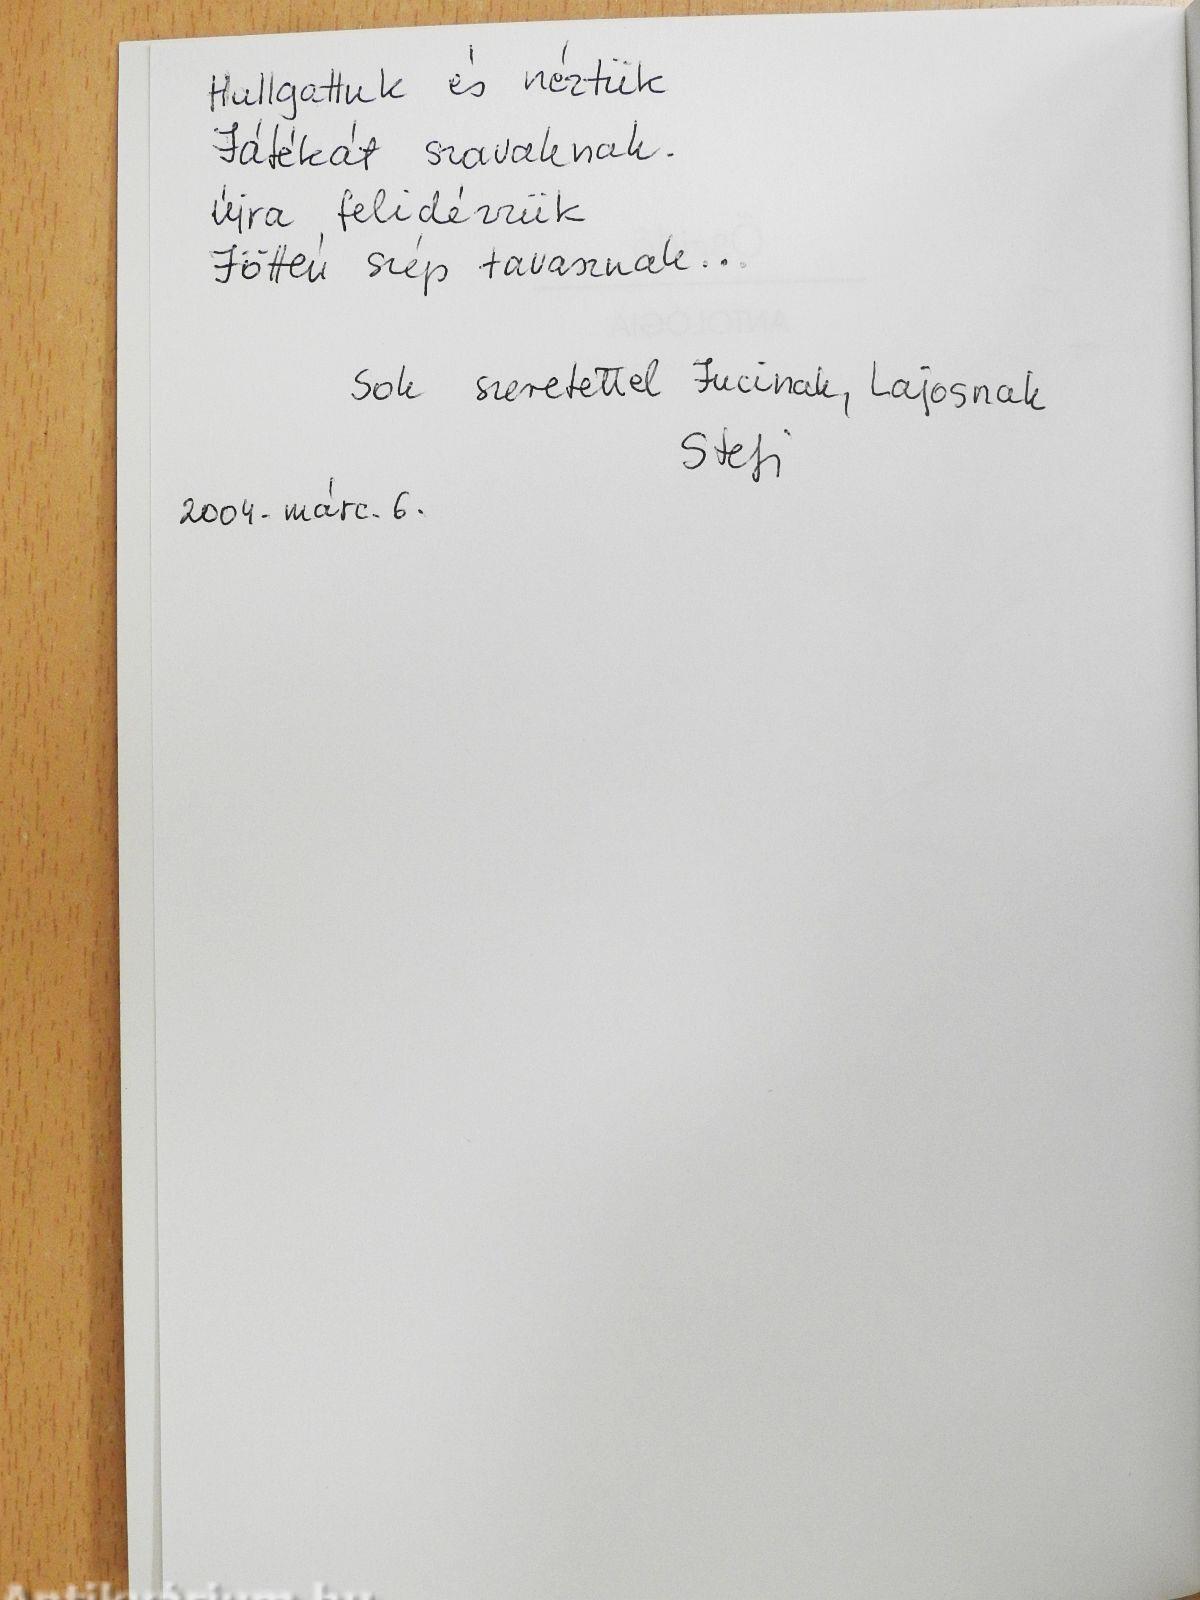 Hallgattuk és néztük
Játékát szavaknak.
Újra felidézzük
Jöttén szép tavasznak...
Sok szeretettel Jucinak, Lajosnak
Stefi
2004. márc. 6.
ANTOLÓGIA
Antikvárium.hu